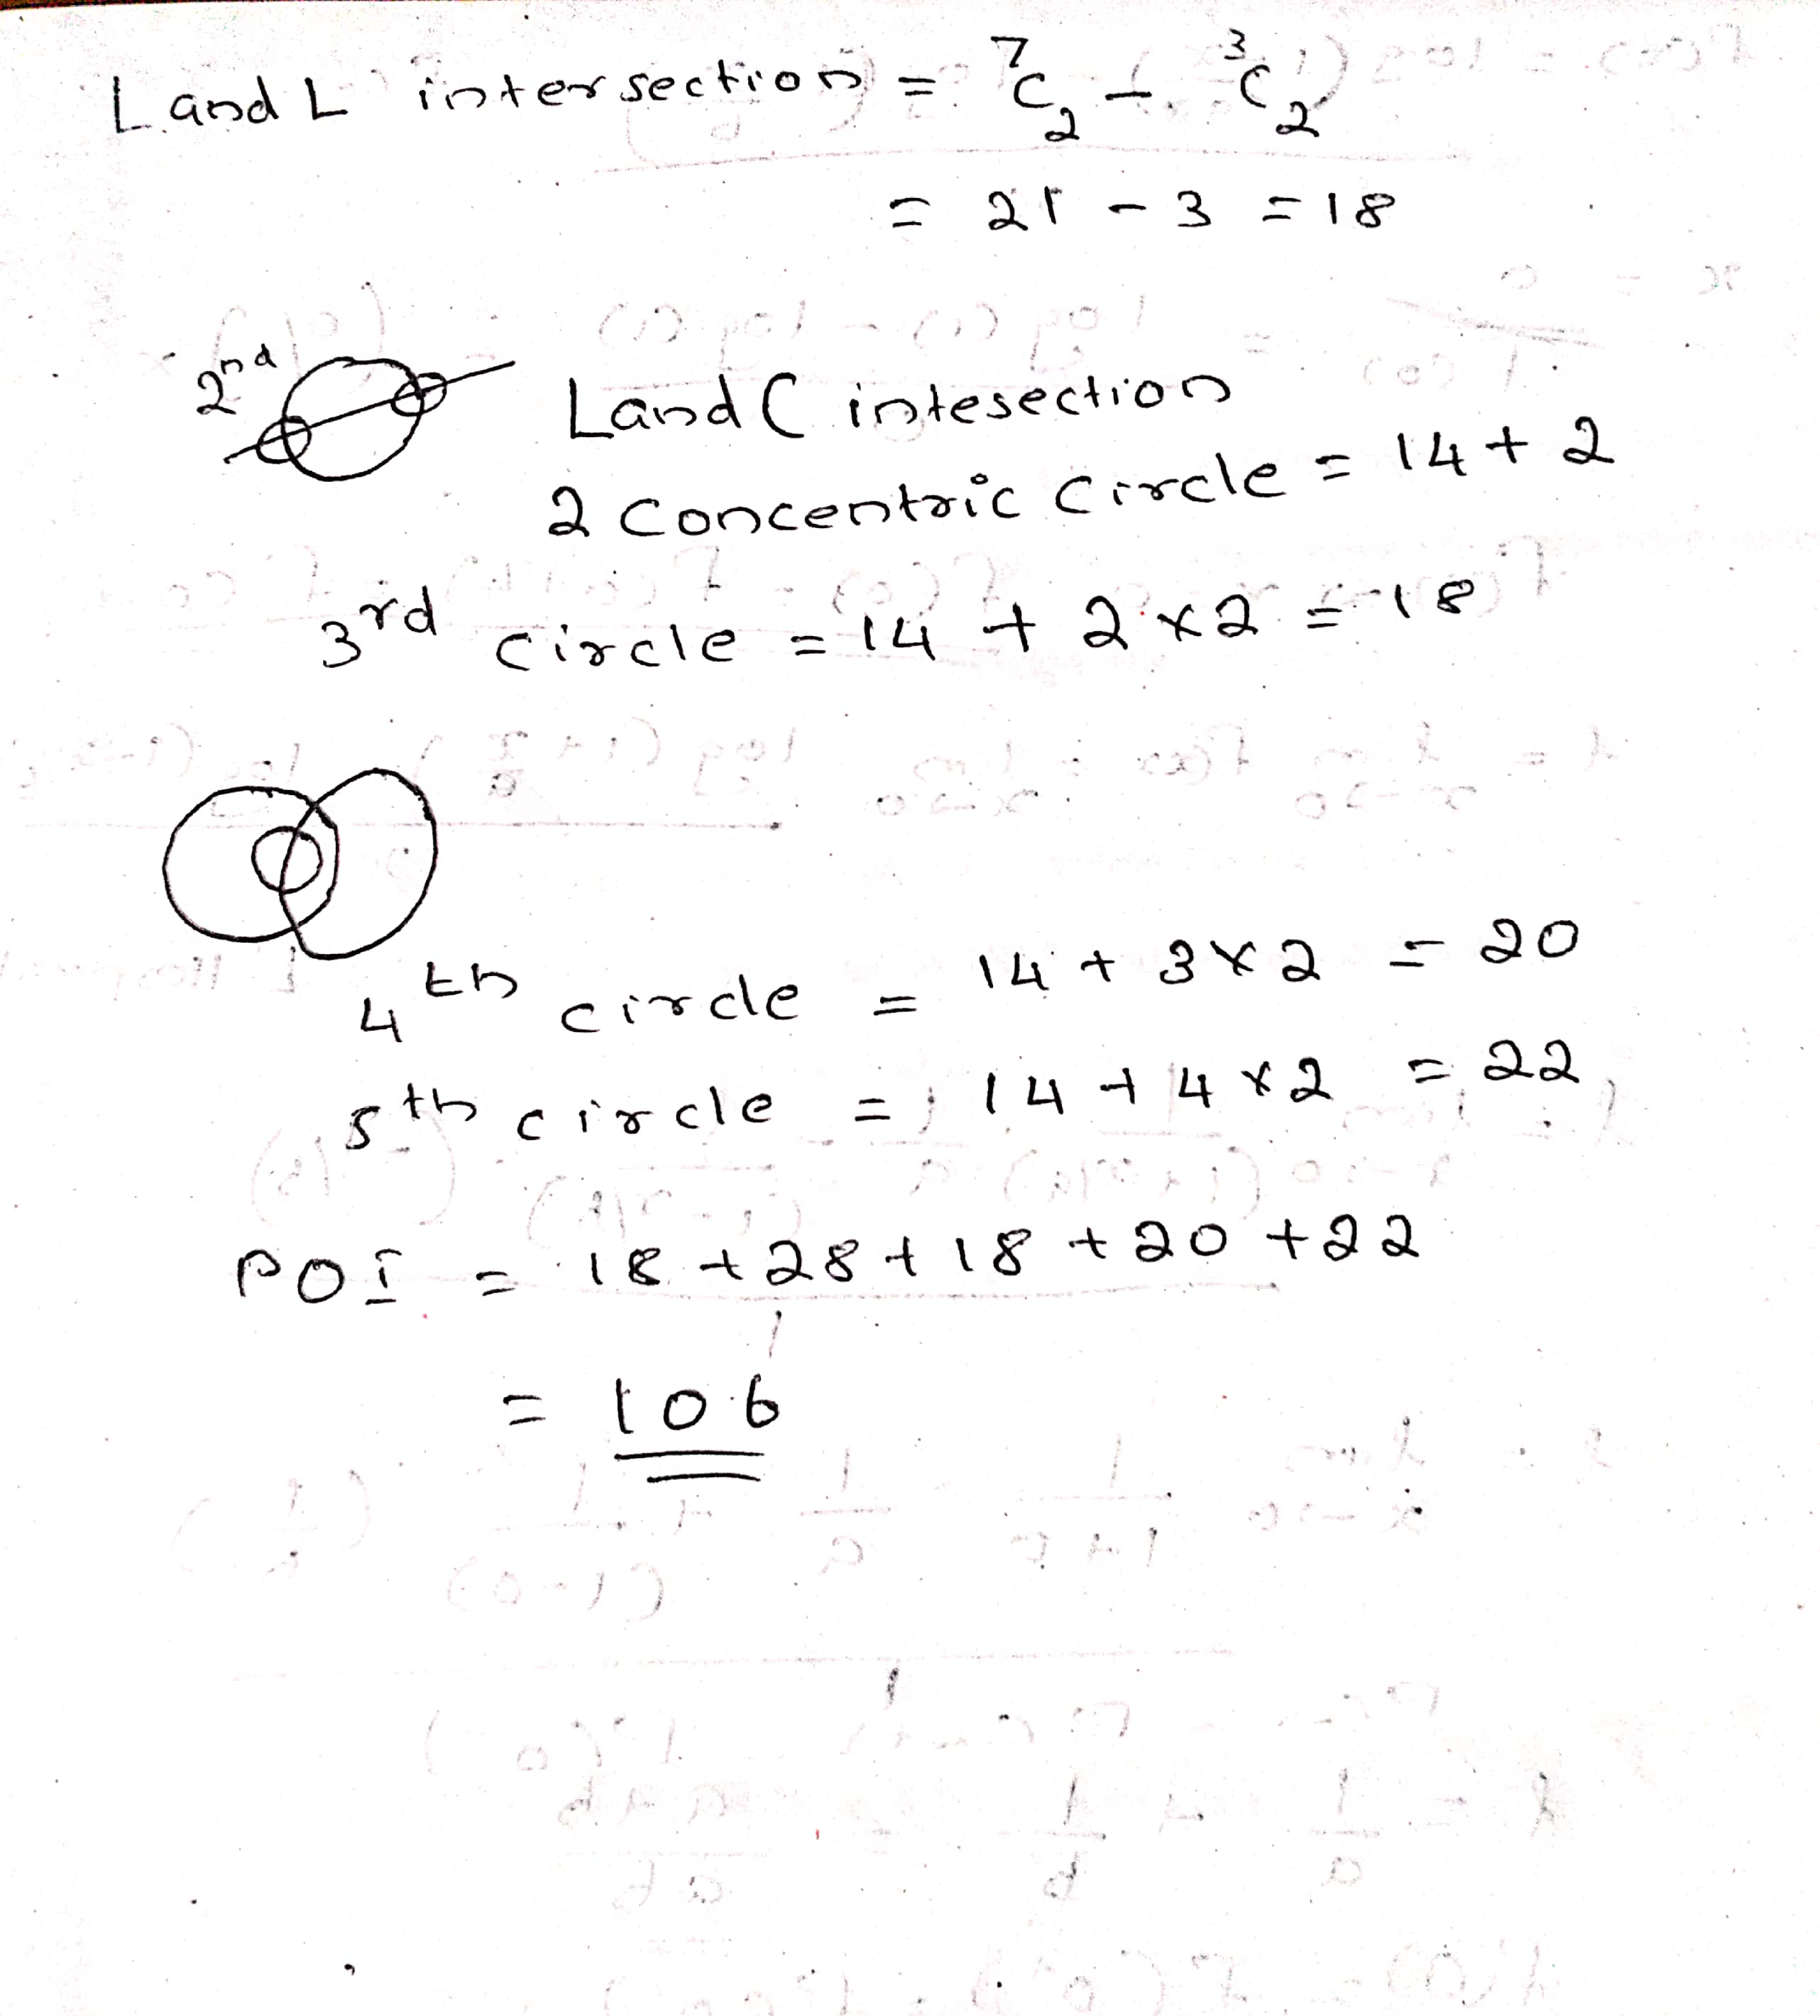 L and L intersection = ⁷C₂ - ³C₂
= 21 - 3 = 18
2nd
L and C intesection
2 concentric circle = 14 + 2
3rd circle = 14 + 2 x 2 = 18
4th circle = 14 + 3 x 2 = 20
5th circle = 14 + 4 x 2 = 22
POI = 18 + 28 + 18 + 20 + 22
= 106